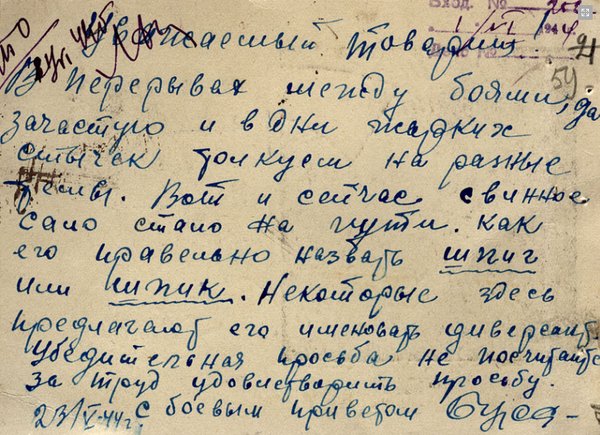 Вход. №
1 VI 1944
Уважаемый товарищ!
21
54
В перерывах между боями, да
зачастую и в дни жарких
стычек толкуем на разные
темы. Вот и сейчас свинное
сало стало на пути. Как
его правельно назвать шпиг
или шпик. Некоторые здесь
предлагают его именовать диверсант.
Убедительная просьба не посчитайте
за труд удовлетворить просьбу.
23/V-44г. С боевым приветом